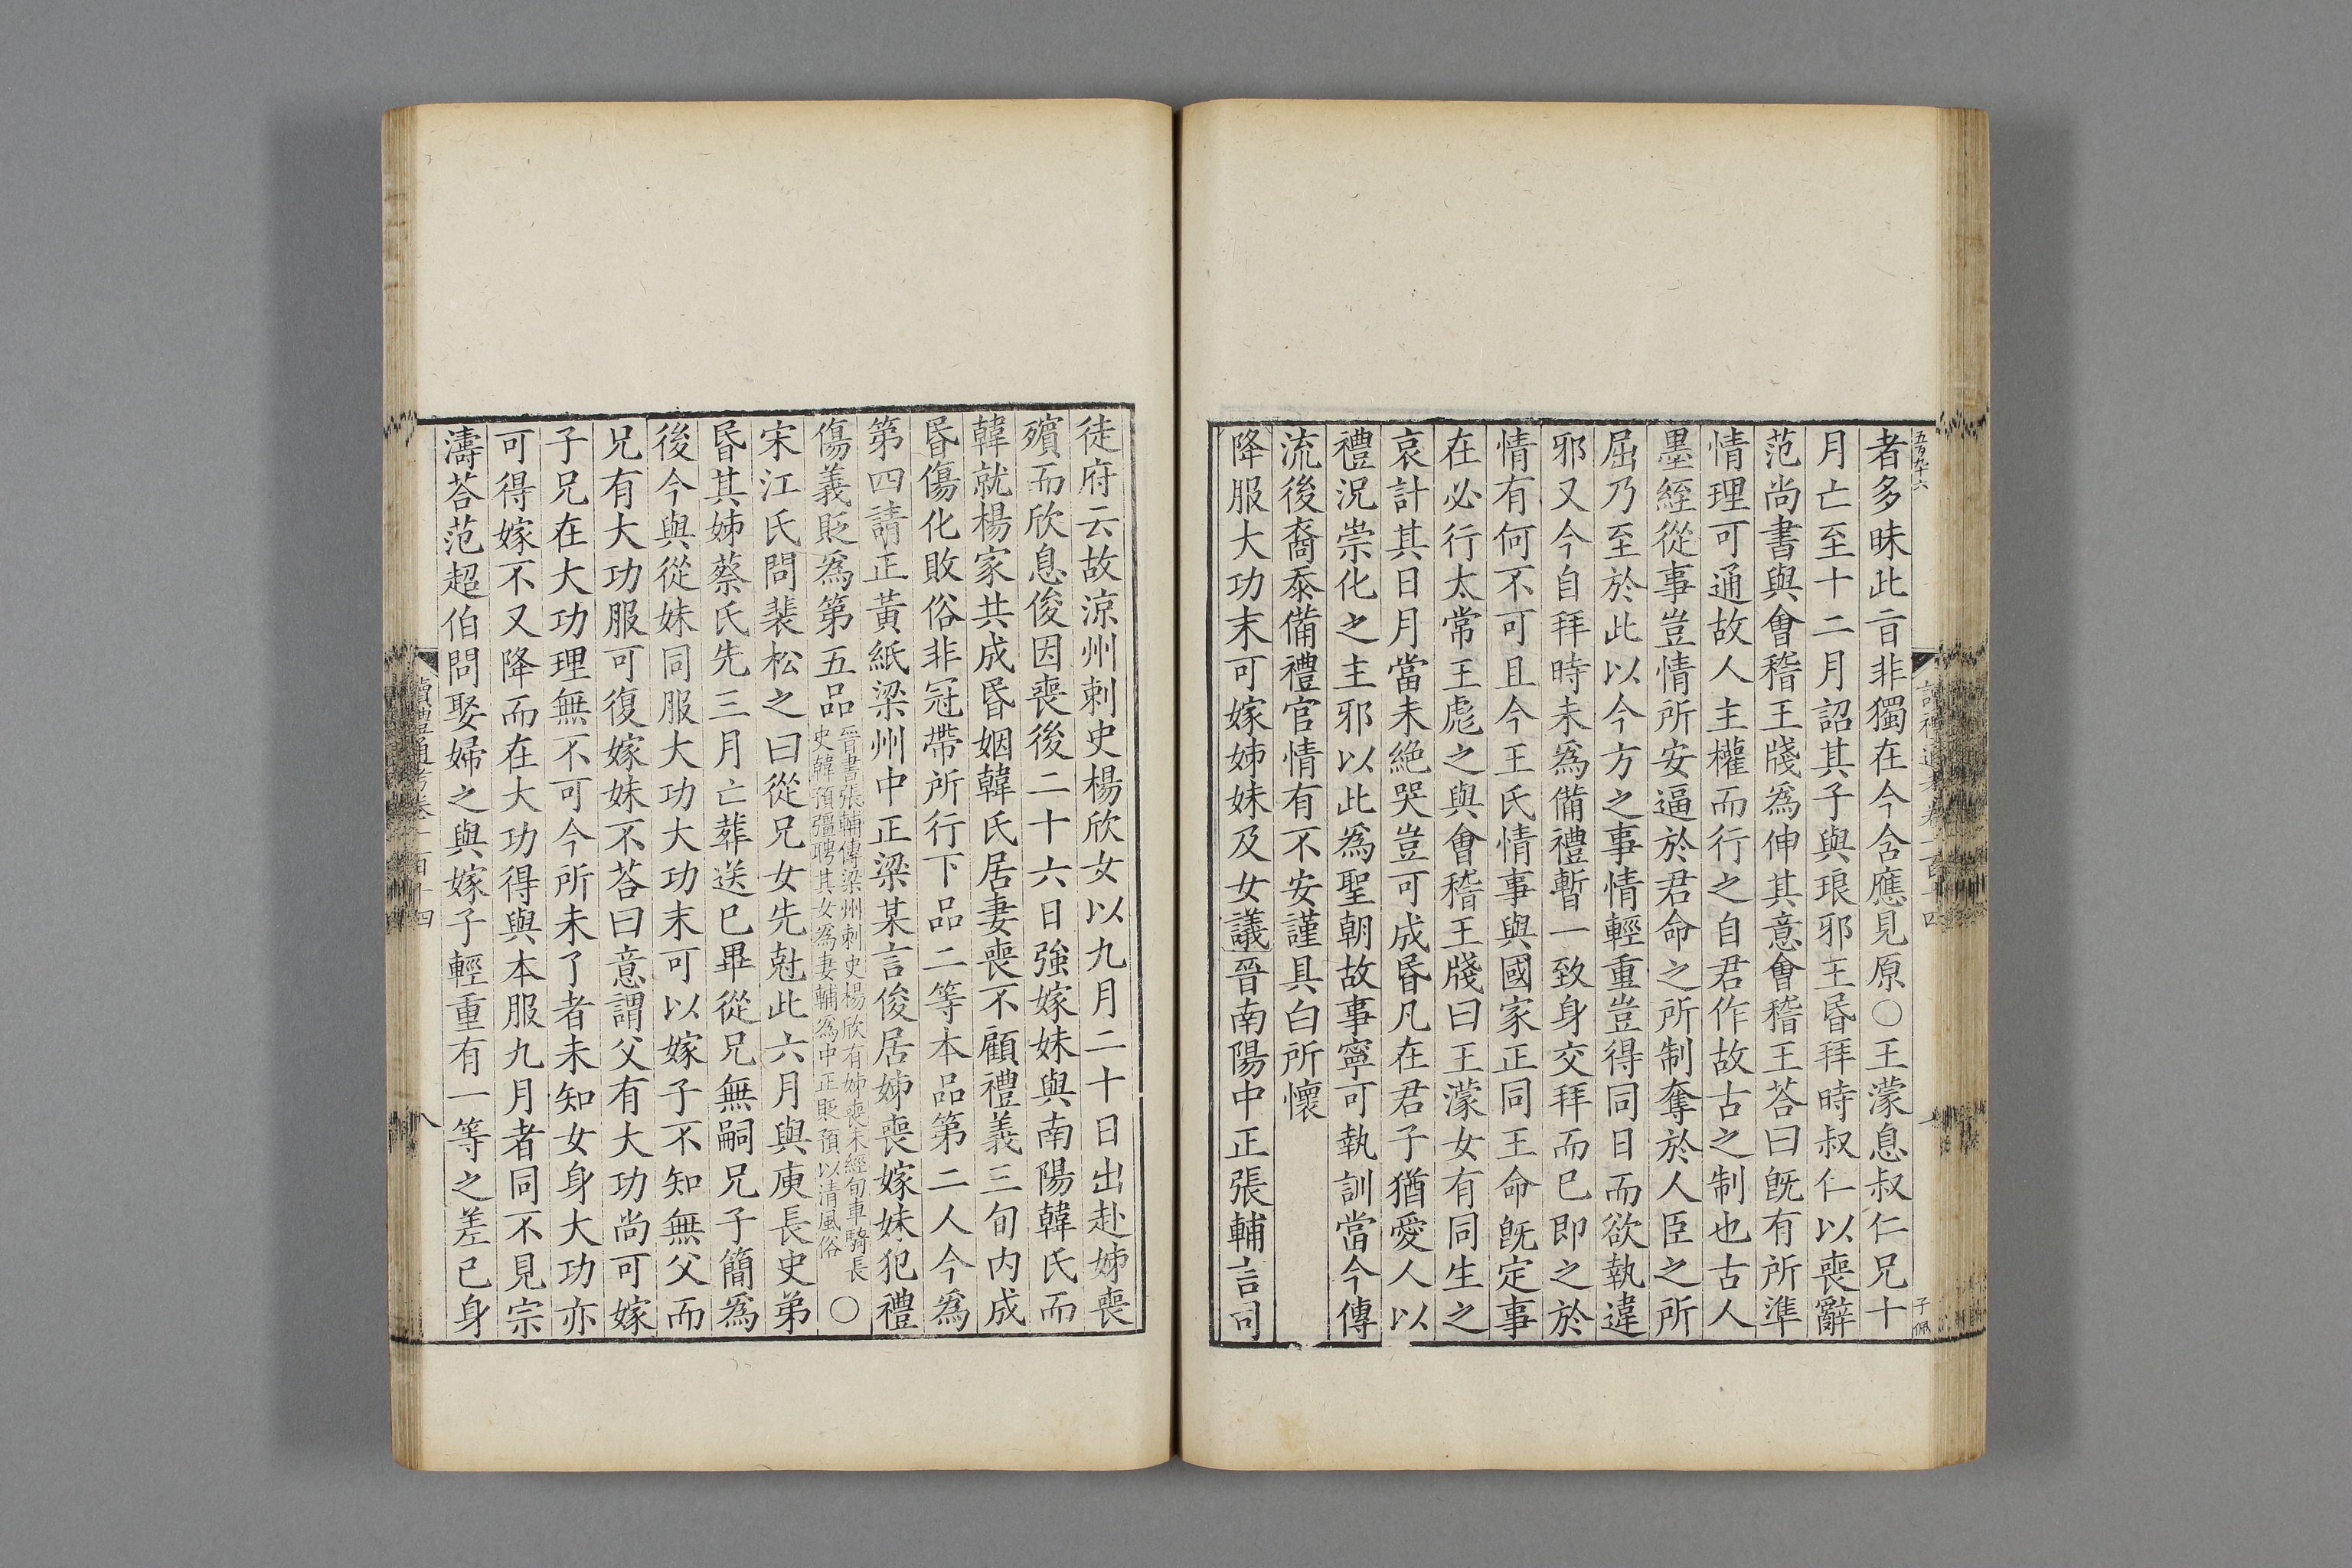 五百九十六
者多昧此㫖非獨在今含應見原○王濛息叔仁兄十
月亡至十二月詔其子與琅邪王昬拜時叔仁以喪辭
范尚書與會稽王牋爲伸其意會稽王荅曰旣有所準
情理可通故人主權而行之自君作故古之制也古人
墨絰從事豈情所安逼於君命之所制奪於人臣之所
屈乃至於此以今方之事情輕重豈得同日而欲執違
邪又今自拜時未爲備禮暫一致身交拜而已即之於
情有何不可且今王氏情事與國家正同王命旣定事
在必行太常王彪之與會稽王牋曰王濛女有同生之
哀計其日月當未絶哭豈可成昬凡在君子猶愛人以
禮況崇化之主邪以此爲聖朝故事寧可執訓當今傳
流後裔忝備禮官情有不安謹具白所懷
降服大功末可嫁姊妹及女議晉南陽中正張輔言司
子佩
徒府云故涼州刺史楊欣女以九月二十日出赴姊喪
殯而欣息俊因喪後二十六日強嫁妹與南陽韓氏而
韓就楊家共成昬姻韓氏居妻喪不顧禮義三旬内成
昬傷化敗俗非冠帶所行下品二等本品第二人今爲
第四請正黃紙梁州中正梁某言俊居姊喪嫁妹犯禮
傷義貶爲第五品晉書張輔傳梁州刺史楊欣有姊喪未經旬車騎長史韓預彊聘其女爲妻輔爲中正貶預以清風俗○
宋江氏問裴松之曰從兄女先尅此六月與庾長史弟
昬其姊蔡氏先三月亡葬送已畢從兄無嗣兄子簡爲
後今與從妹同服大功大功末可以嫁子不知無父而
兄有大功服可復嫁妹不荅曰意謂父有大功尚可嫁
子兄在大功理無不可今所未了者未知女身大功亦
可得嫁不又降而在大功得與本服九月者同不見宗
濤荅范超伯問娶婦之與嫁子輕重有一等之差已身
讀禮通考卷一百十四
八